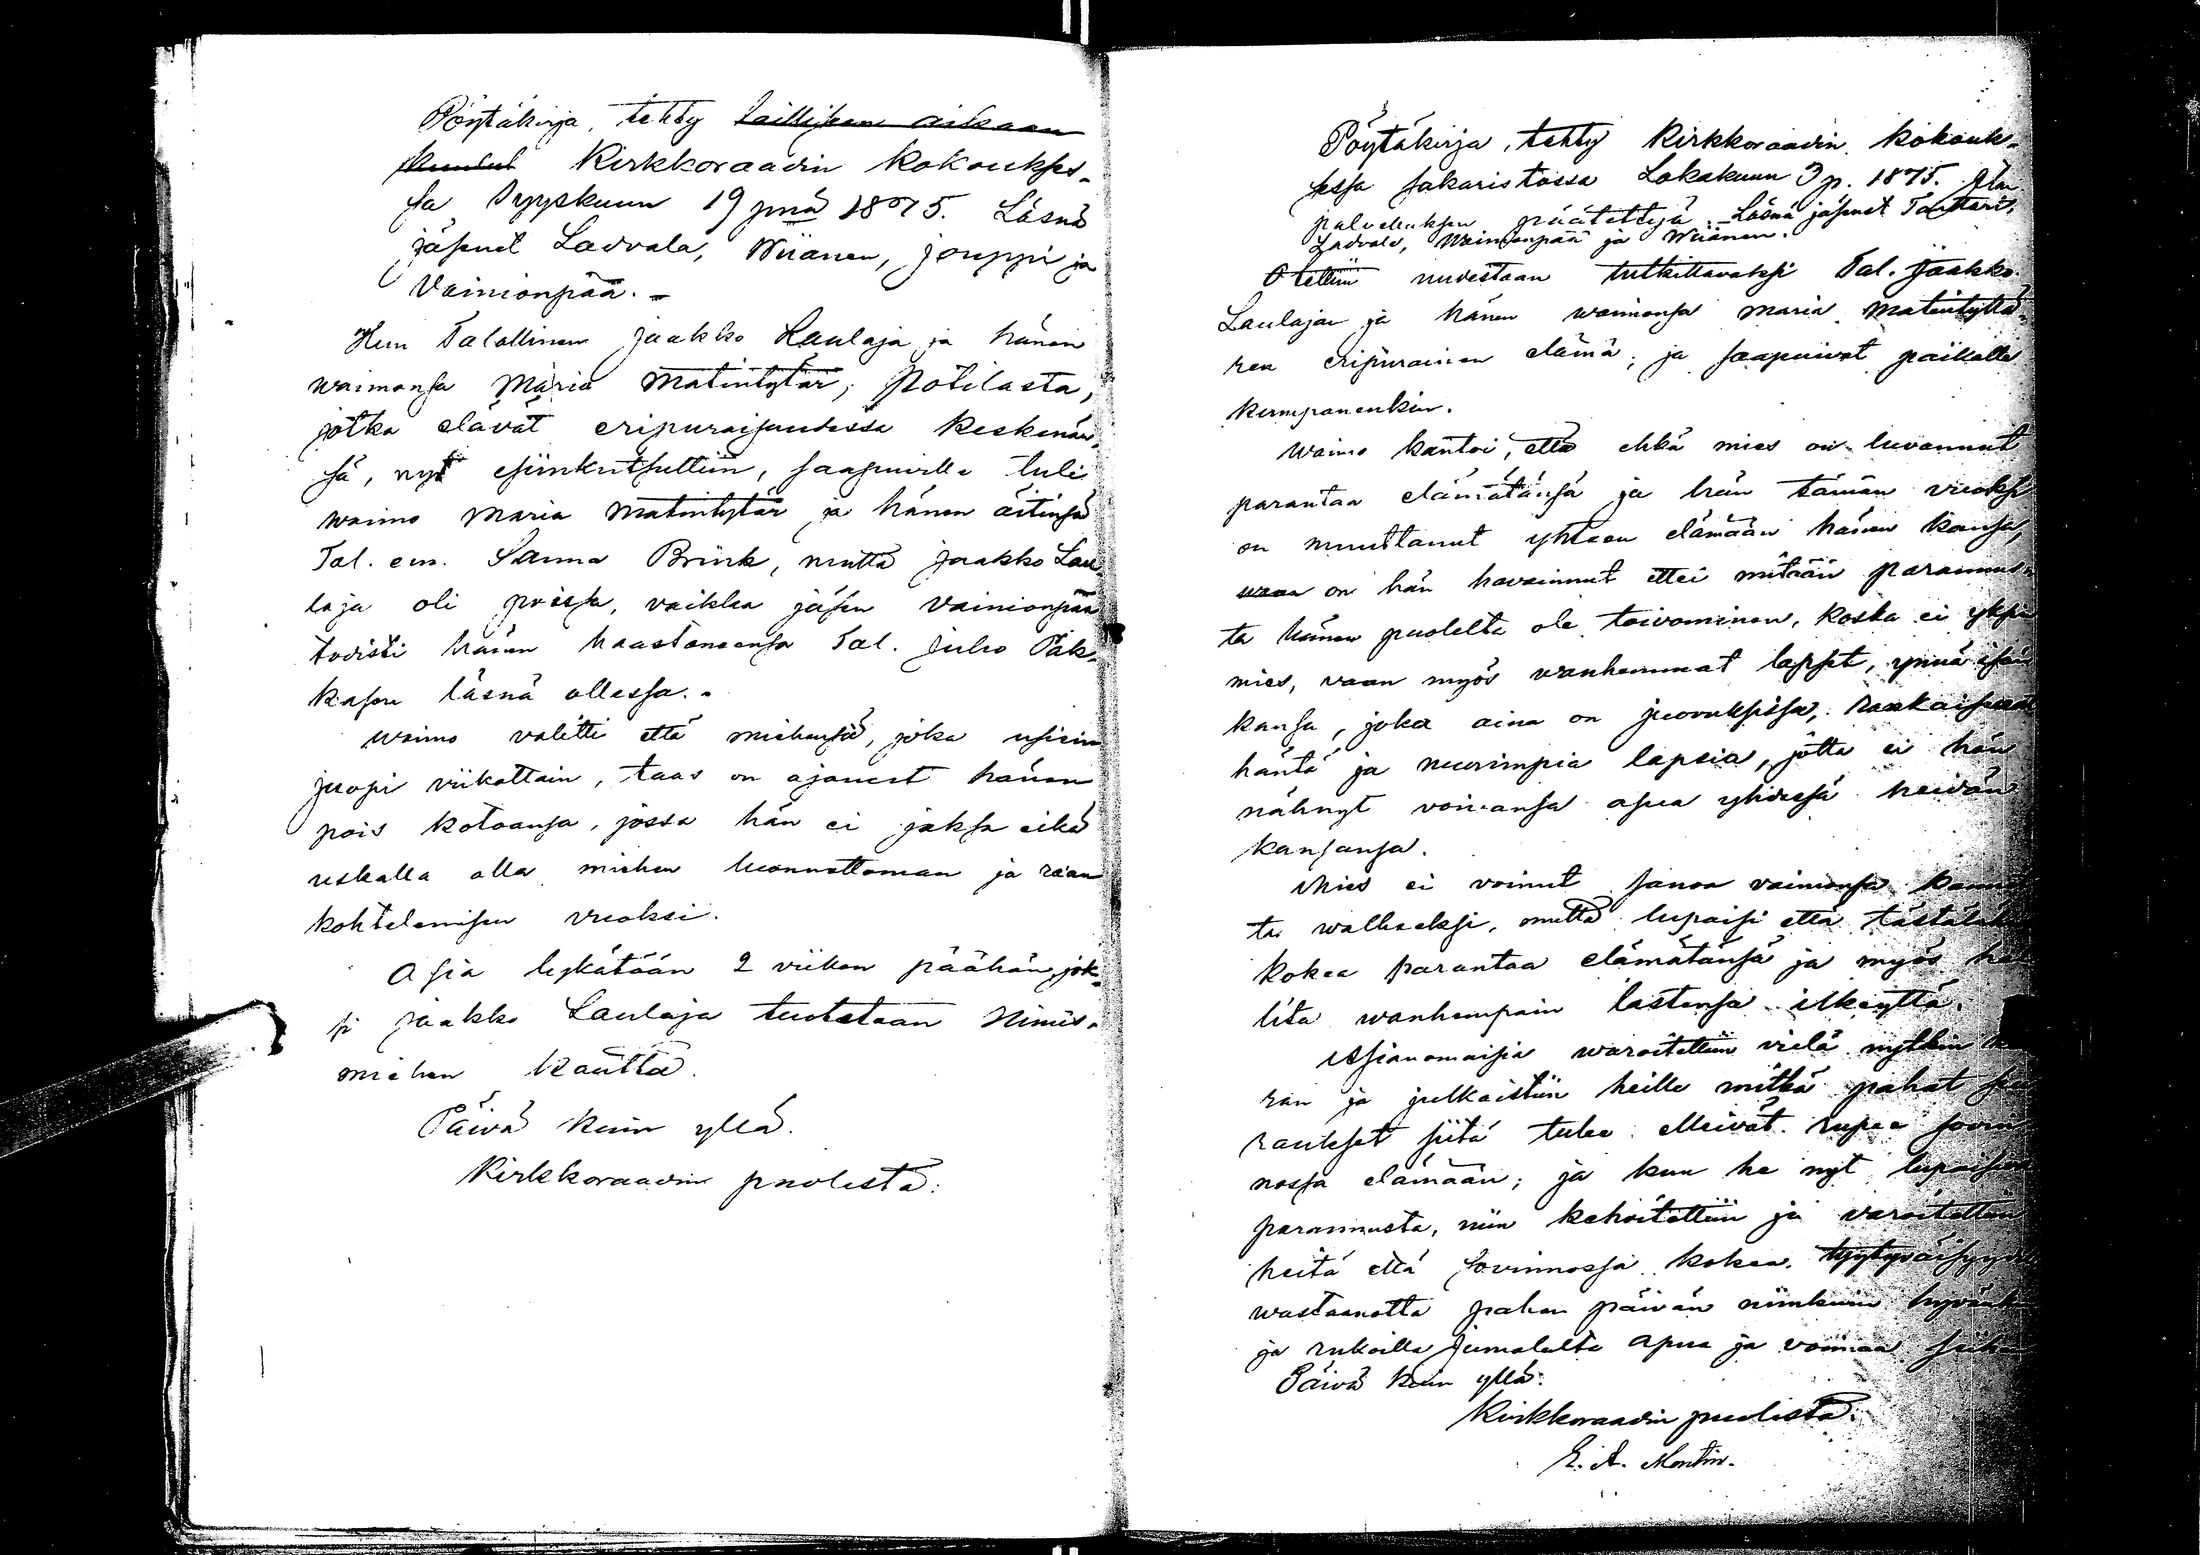 Pöytäkirja, tehty laillisen aikaan
kuulut Kirkkoraadin kokoukses-
sa Syyskuun 19 pnä 1875. Läsnä
jäsenet Ladvala, Wiianen, Jouppi ja
Vainionpää. -
Kun Talollinen Jaakko Laulaja ja hänen
waimonsa Maria Matintytär, Potilasta,
jotka elävät eripuraisuudessa keskenän-
sä, nyt esiinkutsuttiin, saapuville tuli
waimo Maria Matintytär ja hänen äitinsä
Tal. em. Sanna Brink, mutta Jaakko Lau-
laja oli poissa, vaikka jäsen Vainionpää
todisti hänen haastaneensa Tal. Juho Pak-
kasen läsnä ollessa. -
Waimo valitti että miehensä, joka usiein
juopi viikottain, taas on ajanut hänen
pois kotoansa, jossa hän ei jaksa eikä
uskalla olla miehen luonnottoman ja raan
kohtelemisen vuoksi.
Asia lykätään 2 viikon päähän jok-
si Jaakko Laulaja tuotetaan Nimis-
miehen kautta.
Päivä kuin yllä.
Kirkkoraadin puolesta:
Pöytäkirja, tehty Kirkkoraadin kokouk-
sessa sakaristossa Lokakuun 3 p. 1875.
palveluksen päätettyä. Läsnä jäsenet Tanttari,
Ladvala, Wainionpää ja Wiianen.
Otettiin uudestaan tutkittavaksi Tal. Jaakko
Laulajan ja hänen waimonsa Maria Matintyttä-
ren eripurainen elämä; ja saapuivat paikalle
kumpanenkin.
Waimo kantoi, että ehkä mies on luvannut
parantaa elämätänsä ja hän tämän vuoksi
on muuttanut yhteen elämään hänen kansa,
waan on hän havainnut ettei mitään parannus-
ta hänen puolelta ole toivominen, koska ei yksin
mies, vaan myös wanhemmat lapset, ynnä isän
kansa, joka aina on juovuksissa, rankaisevat
häntä ja nuorimpia lapsia, jotta ei hän
nähnyt voivansa asua yhdessä heidän
kansansa.
Mies ei voinut sanoa vaimonsa kannet
ta walheeksi, mutta lupaisi että tästälähin
kokea parantaa elämätänsä ja myös hal
lita wanhempain lastensa ilkeyttä.
Asianomaisia waroitettiin vielä nytkin
ran ja julkaistiin heille mitkä pahat seu
raukset siitä tulee elleivät rupea sovin
nossa elämään; ja kun he nyt lupaisivat
parannusta, niin kehoitettiin ja varoitettiin
heitä että sovinnossa kokea tyytyväisyyd
wastaanottaa pahan päivän niinkuin hyvänkin
ja rukoilla Jumalalta apua ja voimaa siihen
Päivä kuin yllä:
Kirkkoraadin puolesta:
E. A. Montin.